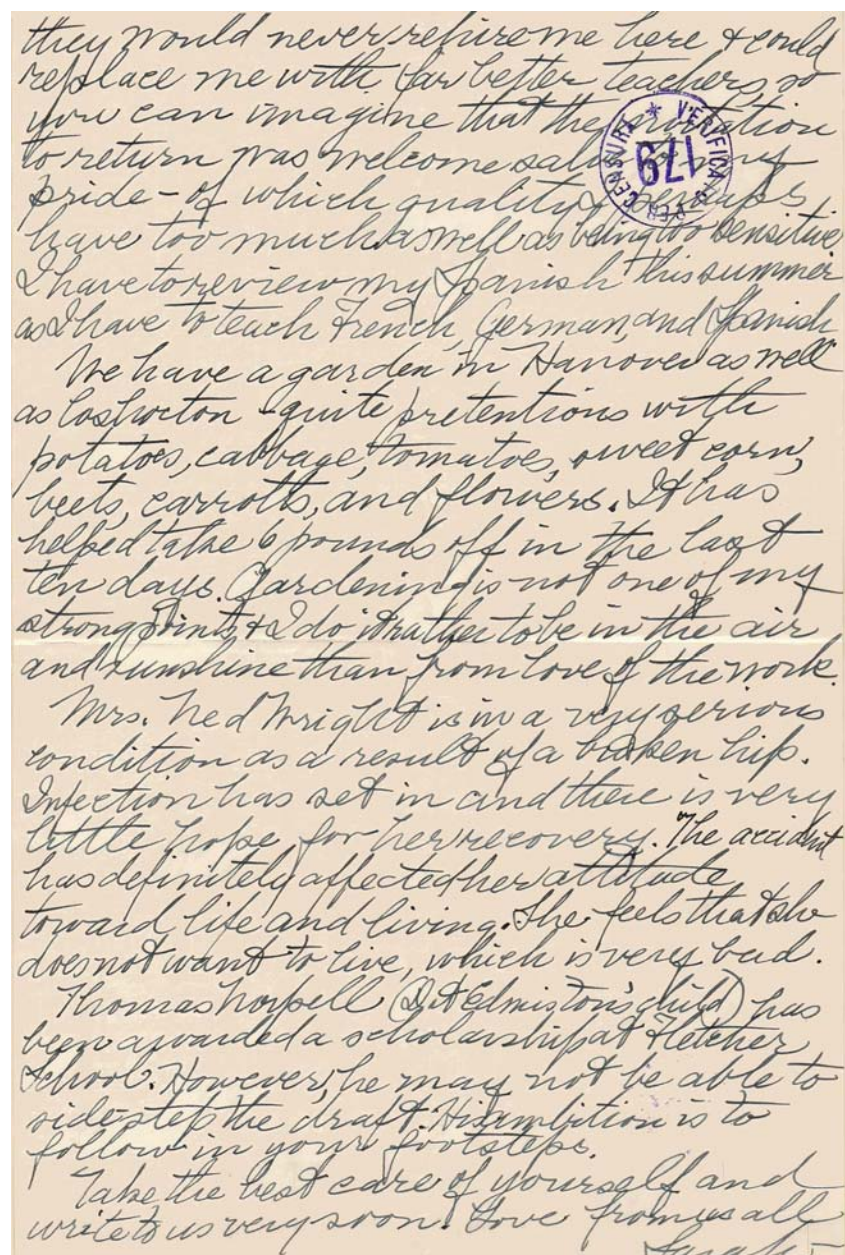 they would never rehire me here & could
replace me with far better teachers, so
you can imagine that the invitation
to return was welcome salve to my
pride - of which quality I perhaps
have too much as well as being too sensitive
I have to review my Spanish this summer
as I have to teach French, German, and Spanish
We have a garden in Hanover as well
as Coshocton - quite pretentious with
potatoes, cabbage, tomatoes, sweet corn,
beets, carrotts, and flowers. It has
helped take 6 pounds off in the last
ten days. Gardening is not one of my
strong points & I do it rather to be in the air
and sunshine than from love of the work.
Mrs. Ned Wright is in a very serious
condition as a result of a broken hip.
Infection has set in and there is very
little hope for her recovery. The accident
has definitely affected her attitude
toward life and living. She feels that she
does not want to live, which is very bad.
Thomas Norpell (Edmiston's child) has
been awarded a scholarship at Fletcher
School. However, he may not be able to
side-step the draft. His ambition is to
follow in your footsteps.
Take the best care of yourself and
write to us very soon. Love from us all
Sarah -
VERIFICATO PER CENSURA
179